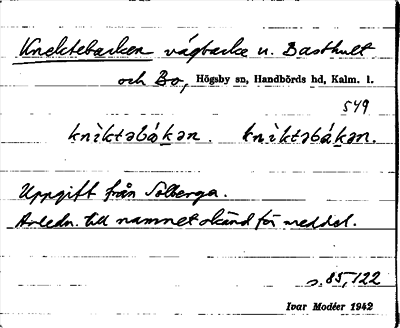 Knektebacken vägbacke n. Basthult
och Bo, Högsby sn, Handbörds hd, Kalm. l.
549
knìktəbákən. knìktəbákən.
Uppgift från Solberga.
Anledn. till namnet okänd för meddel.
s. 85, 122
Ivar Modéer 1942